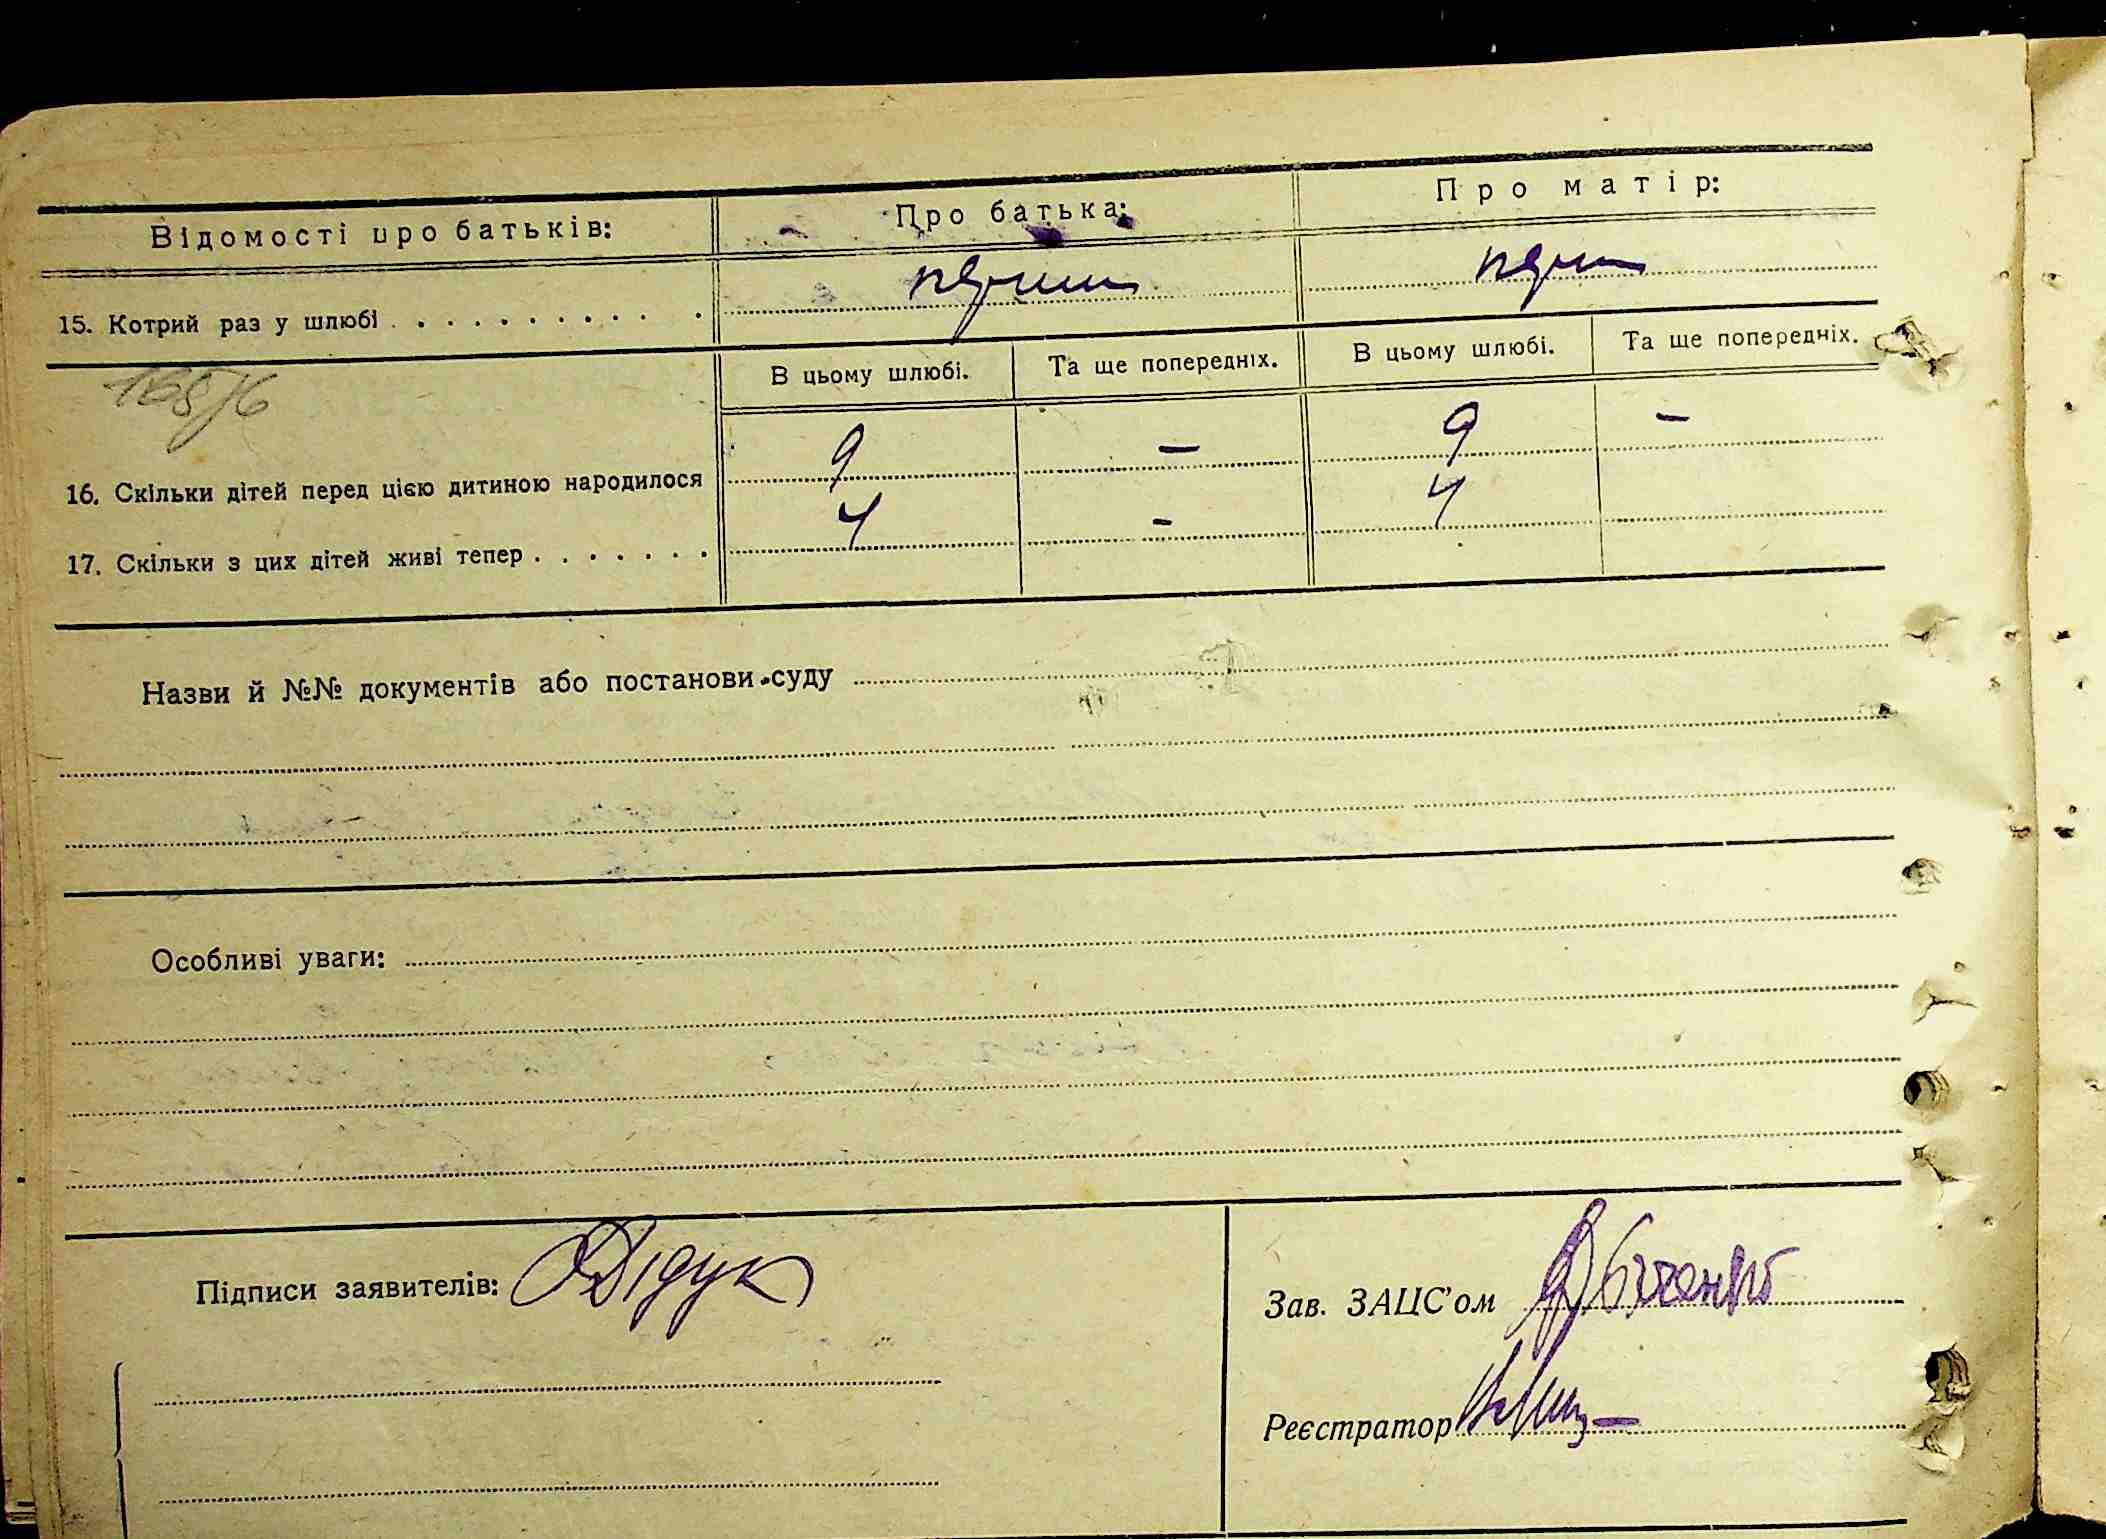 Відомості про батьків: Про батька: Про матір:
15. Котрий раз у шлюбі . . . . . . . . . . перший перш
В цьому шлюбі. Та ще попередніх. В цьому шлюбі. Та ще попередніх.
16. Скільки дітей перед цією дитиною народилося 9 — 9 —
17. Скільки з цих дітей живі тепер . . . . . . . 4 - 4
Назви й №№ документів або постанови суду
Особливі уваги:
Підписи заявителів: Дідук
Зав. ЗАЦС'ом
Реєстратор